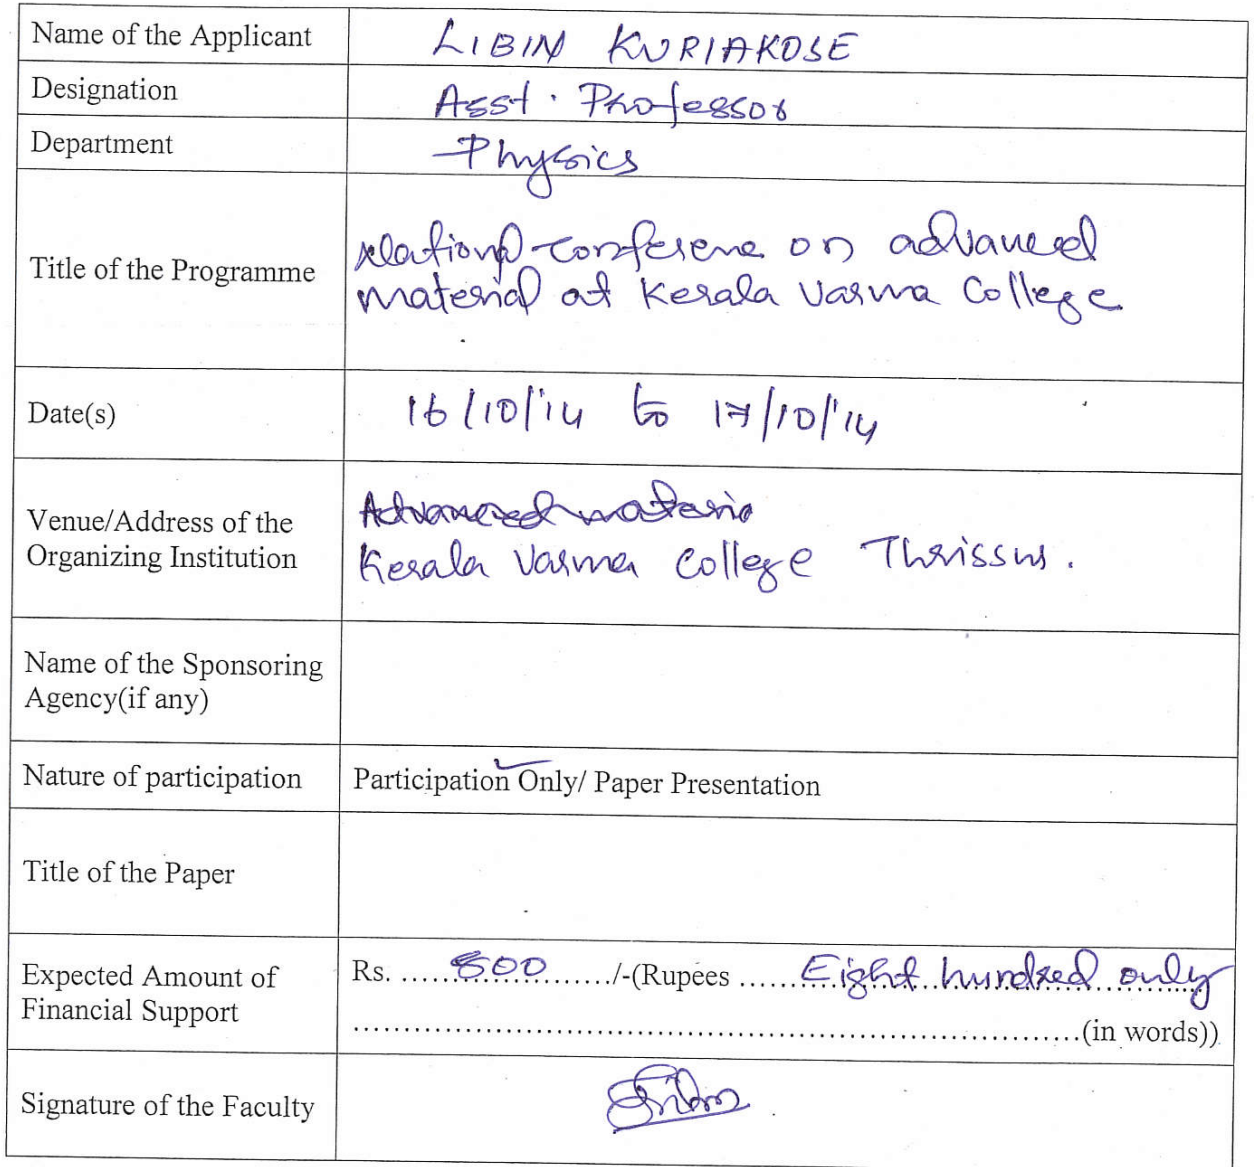 Name of the Applicant LIBIN KURIAKOSE
Designation Asst. Professor
Department Physics
Title of the Programme National Conference on advanced
material at Kerala Varma College
Date(s) 16/10/'14 to 17/10/'14
Venue/Address of the Advanced materia
Organizing Institution Kerala Varma College Thrissur.
Name of the Sponsoring
Agency(if any)
Nature of participation Participation Only/ Paper Presentation
Title of the Paper
Expected Amount of Rs. .....800............/-(Rupees ......Eight hundred only
Financial Support ....................................................................(in words))
Signature of the Faculty